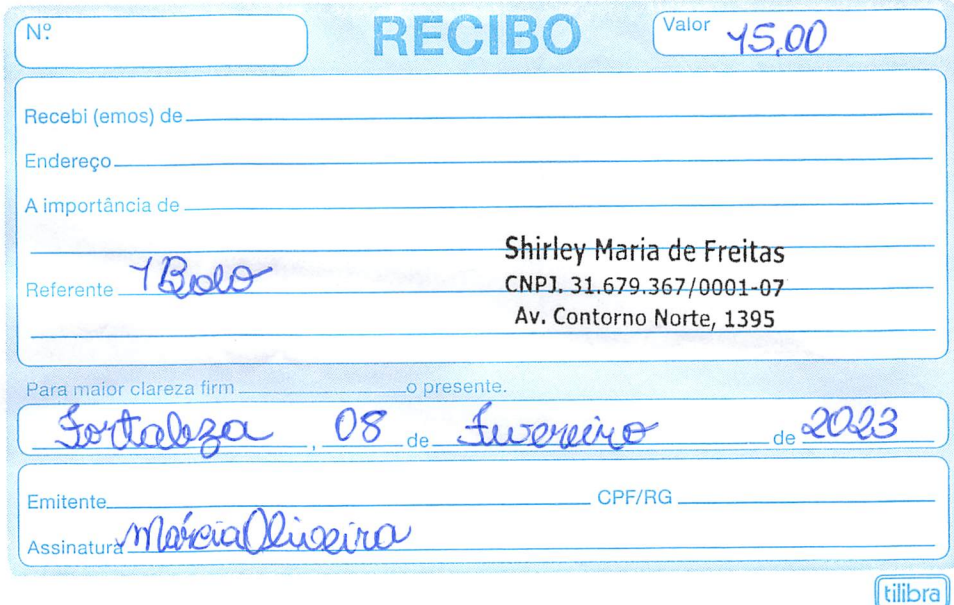 Nº
RECIBO
Valor 15,00
Recebi (emos) de
Endereço
A importância de
Shirley Maria de Freitas
Referente 1 Bolo
CNPJ. 31.679.367/0001-07
Av. Contorno Norte, 1395
Para maior clareza firm o presente.
Fortaleza, 08 de Fevereiro de 2023
Emitente CPF/RG
Assinatura Márcia Oliveira
tilibra